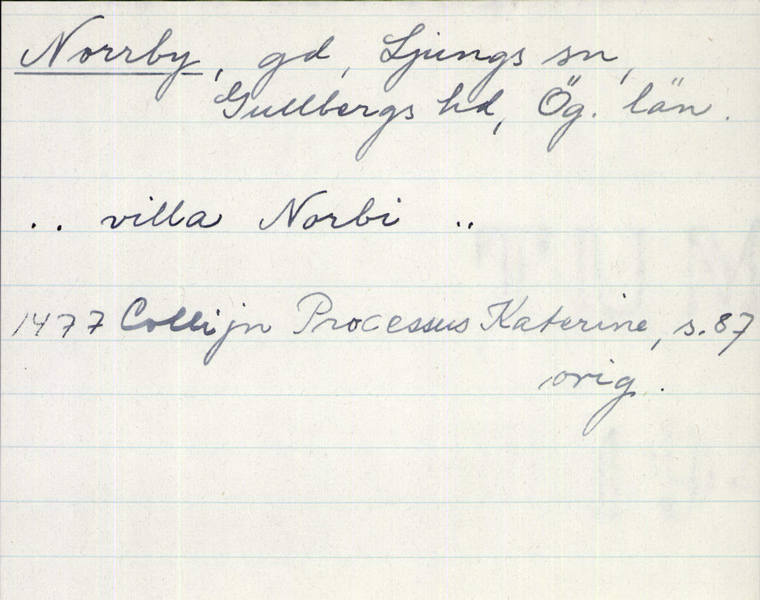 Norrby, gd, Ljungs sn,
Gullbergs hd, Ög. län.
.. villa Norbi ..
1477 Collijn Processus Katerine, s. 87
orig.